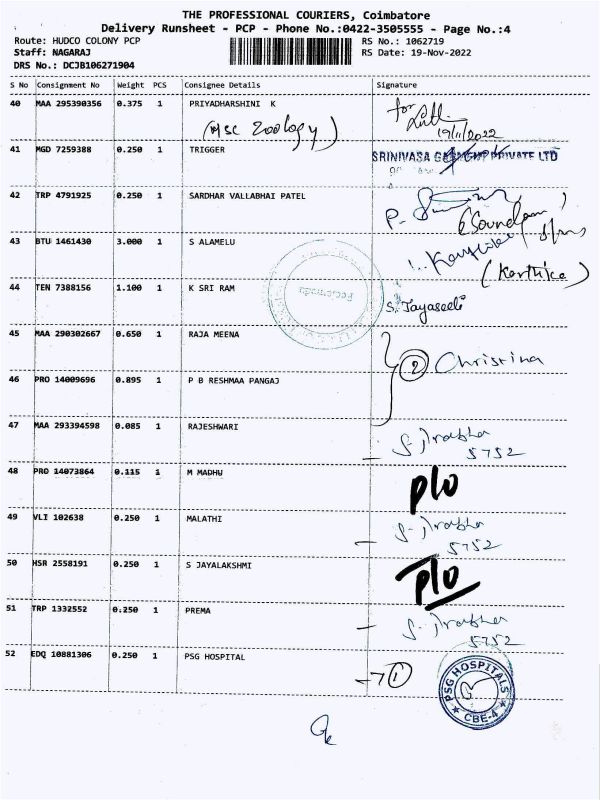 THE PROFESSIONAL COURIERS, Coimbatore
Delivery Runsheet - PCP - Phone No.:0422-3505555 - Page No.:4
Route: HUDCO COLONY PCP
RS No.: 1062719
Staff: NAGARAJ
RS Date: 19-Nov-2022
DRS No.: DCJB106271904
S No Consignment No Weight PCS Consignee Details Signature
40 MAA 295390356 0.375 1 PRIYADHARSHINI K
(MSC Zoology) for
19/11/2022
41 MGD 7259388 0.250 1 TRIGGER SRINIVASA PRIVATE LTD
42 TRP 4791925 0.250 1 SARDHAR VALLABHAI PATEL
P.
43 BTU 1461430 3.000 1 S ALAMELU
(Karthica)
44 TEN 7388156 1.100 1 K SRI RAM
S. Jayaseeli
45 MAA 290302667 0.650 1 RAJA MEENA
2 Christina
46 PRO 14009696 0.895 1 P B RESHMAA PANGAJ
47 MAA 293394598 0.085 1 RAJESHWARI
S. Prabha
5752
48 PRO 14073864 0.115 1 M MADHU
P/O
49 VLI 102638 0.250 1 MALATHI
S. Prabha
5752
50 HSR 2558191 0.250 1 S JAYALAKSHMI
P/O
51 TRP 1332552 0.250 1 PREMA
S. Prabha
5752
52 EDQ 10881306 0.250 1 PSG HOSPITAL
1
PSG HOSPITALS
CBE-4